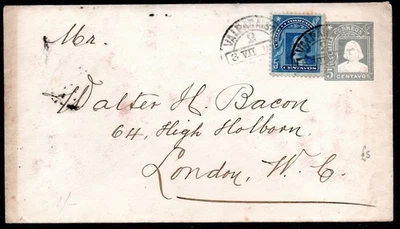 Mr.
VALPARAISO
2
3 VII
CENTAVOS
CORREOS
5 CENTAVOS
Walter H. Bacon
64, High Holborn.
London, W. C.
£5
1/-